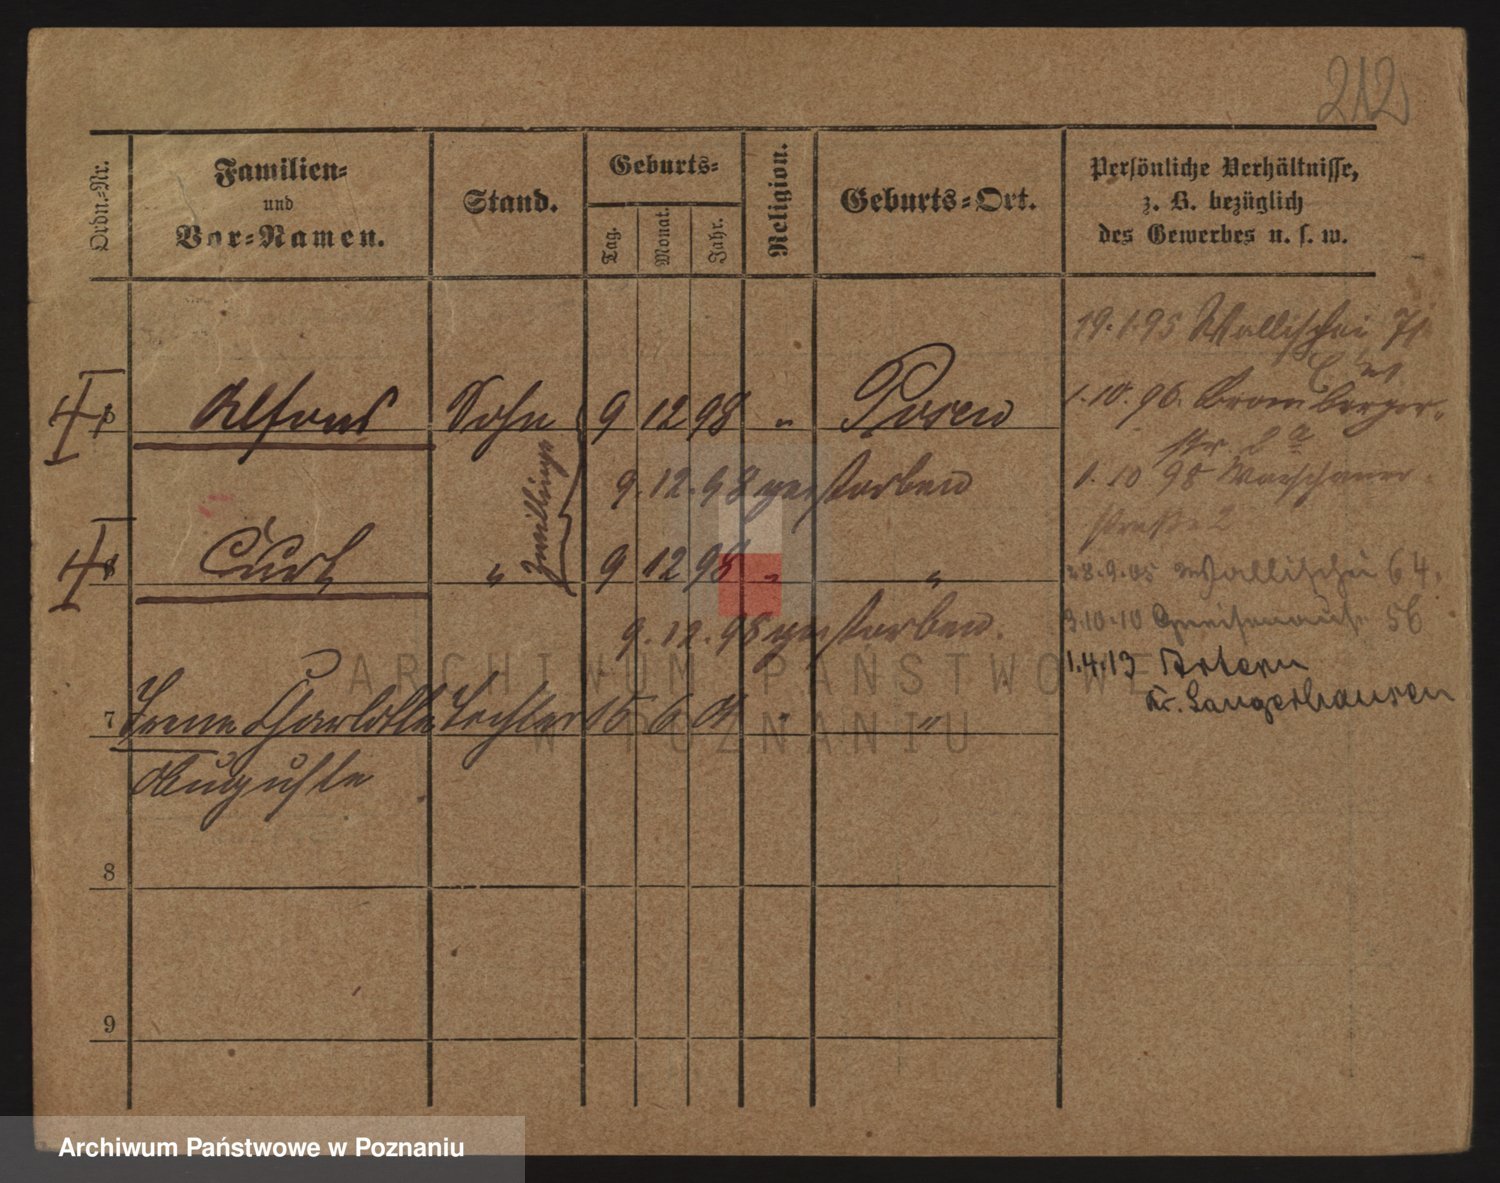 212
Ordn.-Nr.
Familien-
und
Vor-Namen.
Stand.
Geburts-
Tag.
Monat.
Jahr.
Religion.
Geburts-Ort.
Persönliche Verhältnisse,
z. B. bezüglich
des Gewerbes u. s. w.
19.1.95 Wallischei 71
5 Alfons Sohn 9 12 98 " Posen
1.10.96. Bromberger-
str. 2 a
9.12.98 gestorben
1.10 98 Warschauer
straße 2
Zwillinge
6 Curt " 9 12 98 " "
28.9.05 Wallischei 64.
9.12.98 gestorben.
3.10.10 Gneisenaustr. 5b
1.4.13 Artern
Kr. Sangerhausen
7 Irene Charlotte Tochter 15 6 01 " "
Auguste
8
9
ARCHIWUM PAŃSTWOWE
W POZNANIU
Archiwum Państwowe w Poznaniu